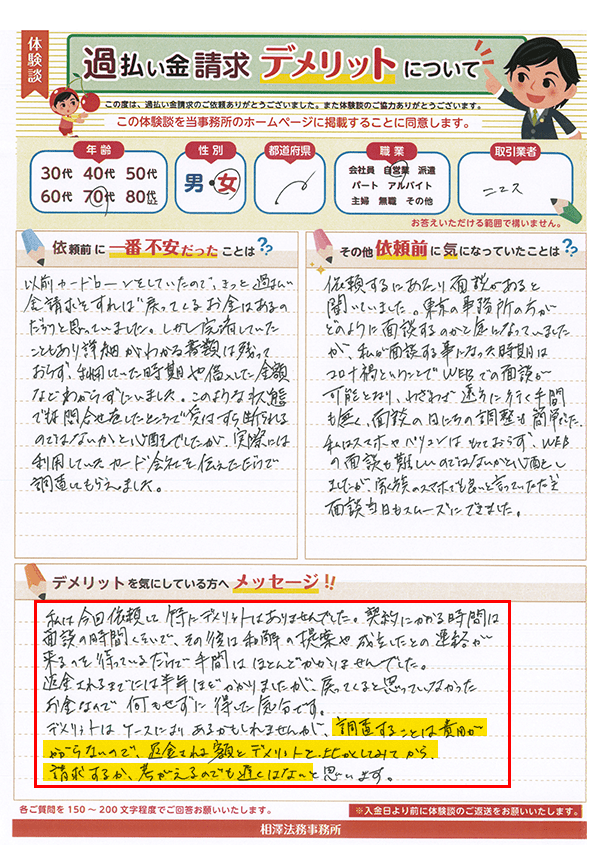 体験談
過払い金請求 デメリットについて
この度は、過払い金請求のご依頼ありがとうございました。また体験談のご協力ありがとうございます。
この体験談を当事務所のホームページに掲載することに同意します。
年齢
30代 40代 50代
60代 70代 80代以上
性別
男・女
都道府県
職業
会社員 自営業 派遣
パート アルバイト
主婦 無職 その他
取引業者
ニコス
お答えいただける範囲で構いません。
依頼前に一番不安だったことは??
以前カードローンをしていたので、きっと過払い
金請求をすれば戻ってくるお金はあるの
だろうと思っていました。しかし完済していた
こともあり詳細がわかる書類は残って
おらず、利用していた時期や借入した金額
などわからずにいました。このような状態
では問合せをしたところで実はすぐ断られる
のではないかと心配をしてたが、実際には
利用していたカード会社を伝えただけで
調査してもらえました。
その他依頼前に気になっていたことは??
依頼するにあたり面談があると
聞いていました。東京の事務所の方が
どのように面談するのかと気になっていました
が、私が面談する事になった時期は
コロナ禍ということでWEBでの面談が
可能となり、わざわざ遠方に行く手間
も無く、面談の日にちの調整も簡単でした。
私はスマホやパソコンはもっておらず、WEB
の面談も難しいのではないかと心配とし
ましたが、家族のスマホでも良いと言っていただき
面談当日もスムーズにできました。
デメリットを気にしている方へメッセージ!!
私は今回依頼して特にデメリットはありませんでした。契約にかかる時間は
面談の時間くらいで、その後は和解の提案や成立したとの連絡が
来るのを待っているだけで手間はほとんどかかりませんでした。
返金されるまでには半年ほどかかりましたが、戻ってくると思っていなかった
お金なので何もせずに得した気分です。
デメリットはケースによりあるかもしれませんが、調査することは費用が
かからないので、返金される額とデメリットを比かくしてみてから、
請求するか、考がえるのでも遅くはないと思います。
各ご質問を150～200文字程度でご回答お願いいたします。
※入金日より前に体験談のご返送をお願いいたします。
相澤法務事務所